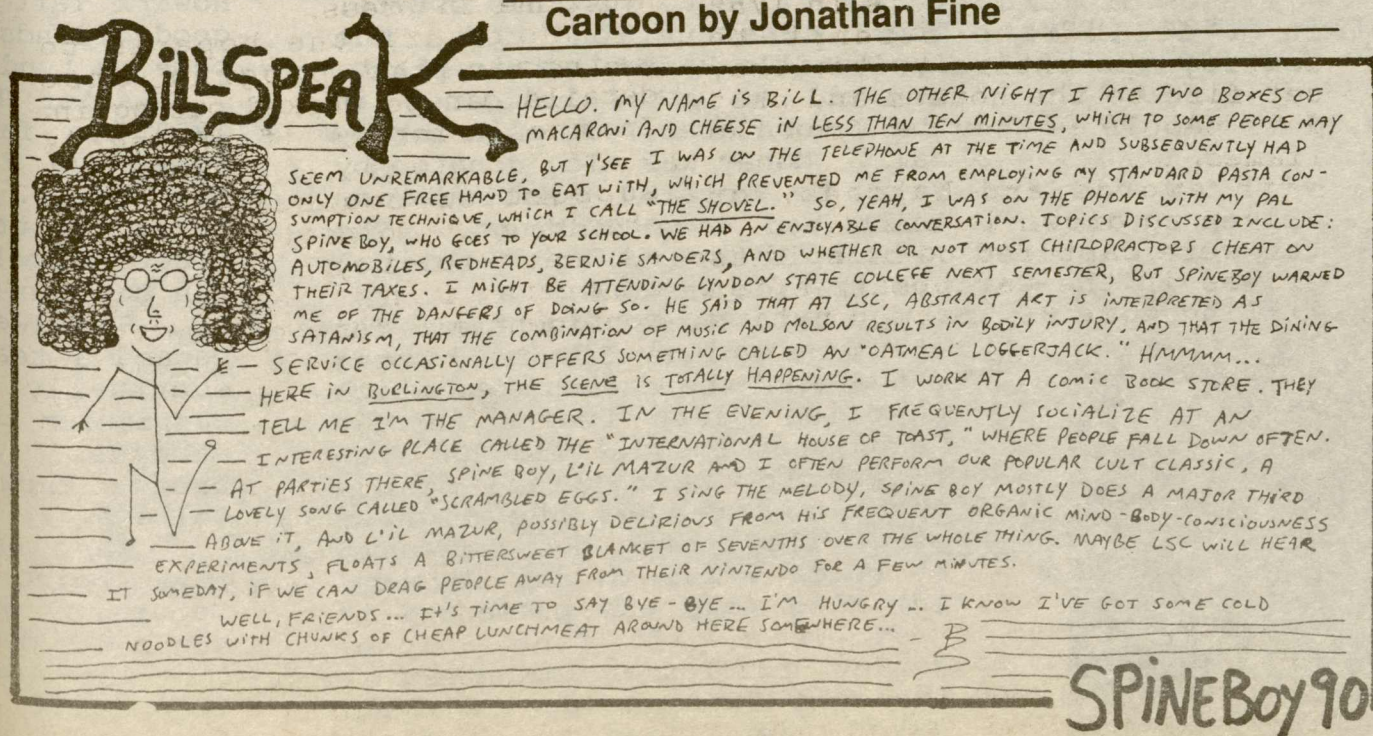 Cartoon by Jonathan Fine
BILLSPEAK
HELLO. MY NAME IS BILL. THE OTHER NIGHT I ATE TWO BOXES OF
MACARONI AND CHEESE IN LESS THAN TEN MINUTES, WHICH TO SOME PEOPLE MAY
SEEM UNREMARKABLE, BUT Y'SEE I WAS ON THE TELEPHONE AT THE TIME AND SUBSEQUENTLY HAD
ONLY ONE FREE HAND TO EAT WITH, WHICH PREVENTED ME FROM EMPLOYING MY STANDARD PASTA CON-
SUMPTION TECHNIQUE, WHICH I CALL "THE SHOVEL." SO, YEAH, I WAS ON THE PHONE WITH MY PAL
SPINE BOY, WHO GOES TO YOUR SCHOOL. WE HAD AN ENJOYABLE CONVERSATION. TOPICS DISCUSSED INCLUDE:
AUTOMOBILES, REDHEADS, BERNIE SANDERS, AND WHETHER OR NOT MOST CHIROPRACTORS CHEAT ON
THEIR TAXES. I MIGHT BE ATTENDING LYNDON STATE COLLEGE NEXT SEMESTER, BUT SPINEBOY WARNED
ME OF THE DANGERS OF DOING SO. HE SAID THAT AT LSC, ABSTRACT ART IS INTERPRETED AS
SATANISM, THAT THE COMBINATION OF MUSIC AND MOLSON RESULTS IN BODILY INJURY, AND THAT THE DINING
SERVICE OCCASIONALLY OFFERS SOMETHING CALLED AN "OATMEAL LOGGERJACK." HMMMM...
HERE IN BURLINGTON, THE SCENE IS TOTALLY HAPPENING. I WORK AT A COMIC BOOK STORE. THEY
TELL ME I'M THE MANAGER. IN THE EVENING, I FREQUENTLY SOCIALIZE AT AN
INTERESTING PLACE CALLED THE "INTERNATIONAL HOUSE OF TOAST," WHERE PEOPLE FALL DOWN OFTEN.
AT PARTIES THERE, SPINE BOY, L'IL MAZUR AND I OFTEN PERFORM OUR POPULAR CULT CLASSIC, A
LOVELY SONG CALLED "SCRAMBLED EGGS." I SING THE MELODY, SPINE BOY MOSTLY DOES A MAJOR THIRD
ABOVE IT, AND L'IL MAZUR, POSSIBLY DELIRIOUS FROM HIS FREQUENT ORGANIC MIND-BODY-CONSCIOUSNESS
EXPERIMENTS, FLOATS A BITTERSWEET BLANKET OF SEVENTHS OVER THE WHOLE THING. MAYBE LSC WILL HEAR
IT SOMEDAY, IF WE CAN DRAG PEOPLE AWAY FROM THEIR NINTENDO FOR A FEW MINUTES.
WELL, FRIENDS... IT'S TIME TO SAY BYE-BYE... I'M HUNGRY... I KNOW I'VE GOT SOME COLD
NOODLES WITH CHUNKS OF CHEAP LUNCHMEAT AROUND HERE SOMEWHERE... -B
SPINEBOY 90